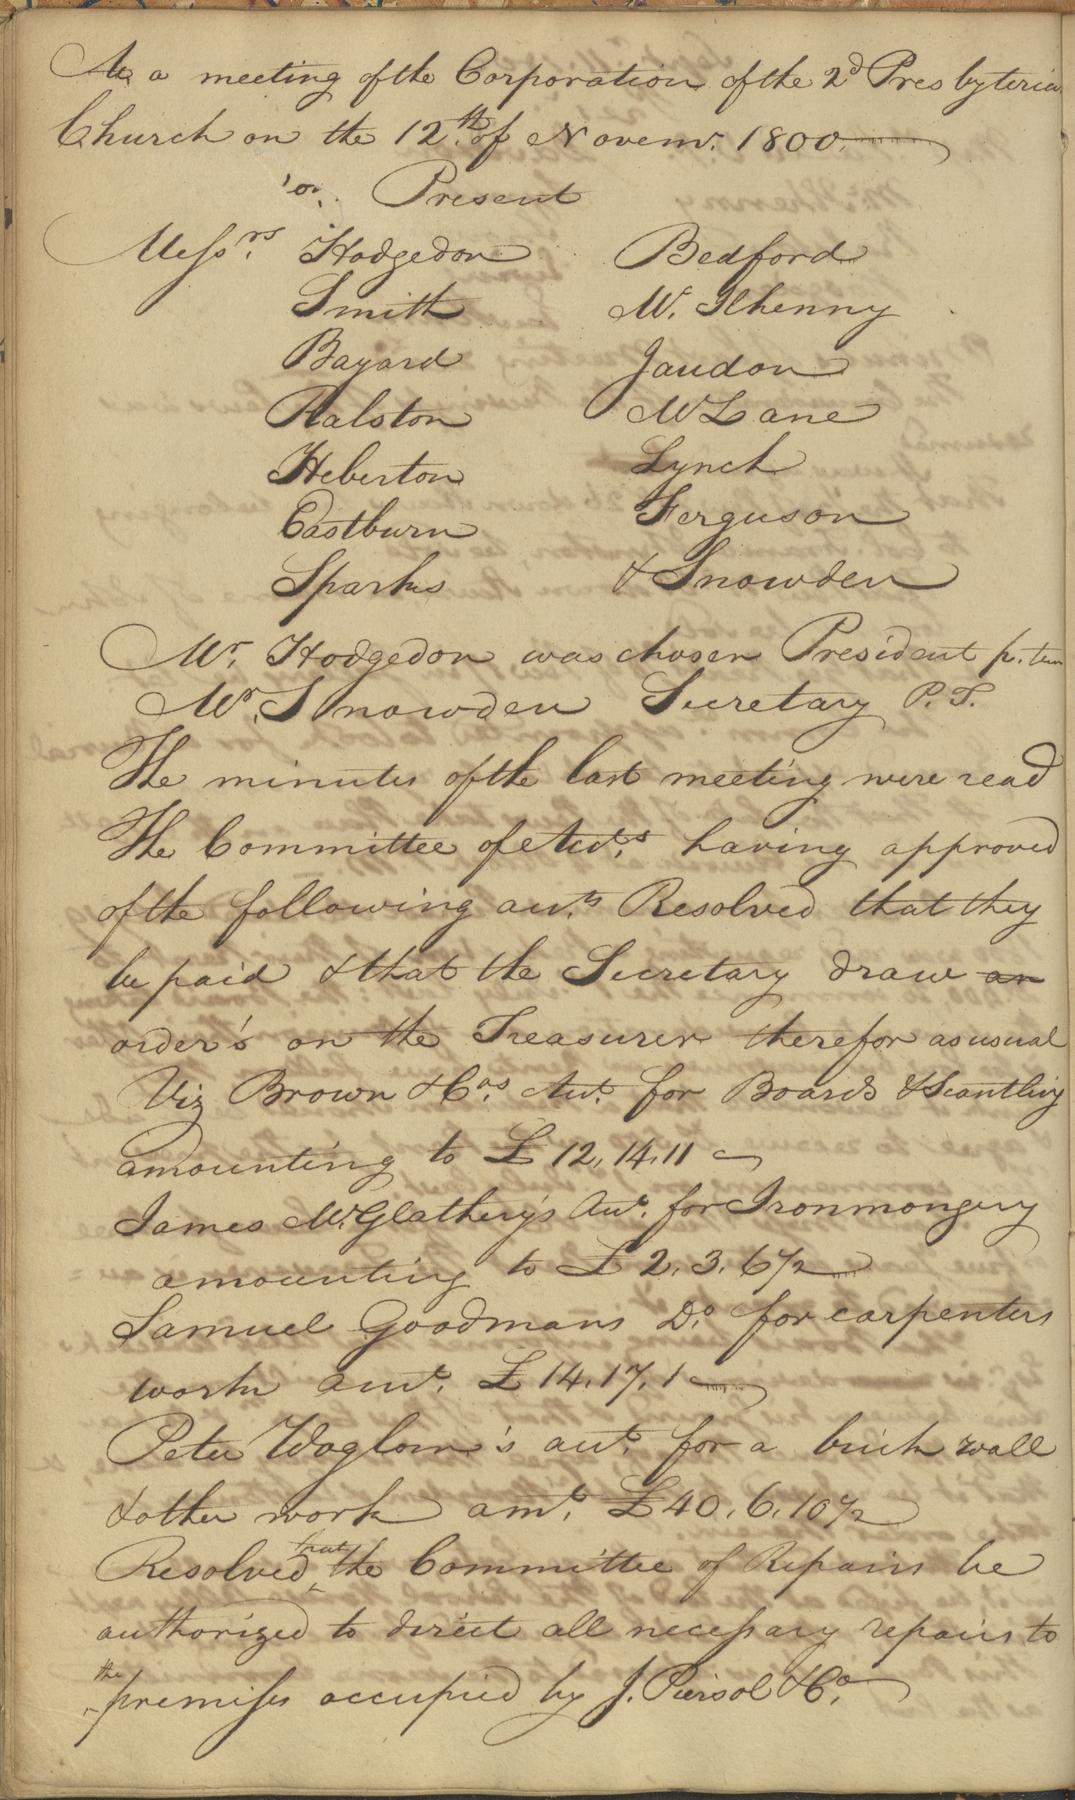 At a meeting of the Corporation of the 2d Presbyteria
Church on the 12th of Novemr. 1800
Present
Messrs. Hodgedon Bedford
Smith Mc. Ilhenny
Bayard Jaudon
Ralston McLane
Heberton Lynch
Eastburn Ferguson
Sparks & Snowden
Mr. Hodgedon was chosen President p. tem
Mr. Snowden Secretary P.T.
The minutes of the last meeting were read
The Committee of Acts. having approved
of the following acts. Resolved that they
be paid & that the Secretary draw an
order's on the Treasurer therefor as usual
Viz Brown & Cos. Act. for Boards & Scantling
amounting to £ 12,14,11
James Mc.Glathery's Act. for Ironmongery
amounting to £ 2.3.6½
Samuel Goodmans Do. for carpenters
work amt. £ 14.17.1
Peter Woglom's act. for a brick wall
& other work amt. £40.6.10½
Resolved that the Committee of Repairs be
authorized to direct all necessary repairs to
the premises occupied by J. Piersol & Co.